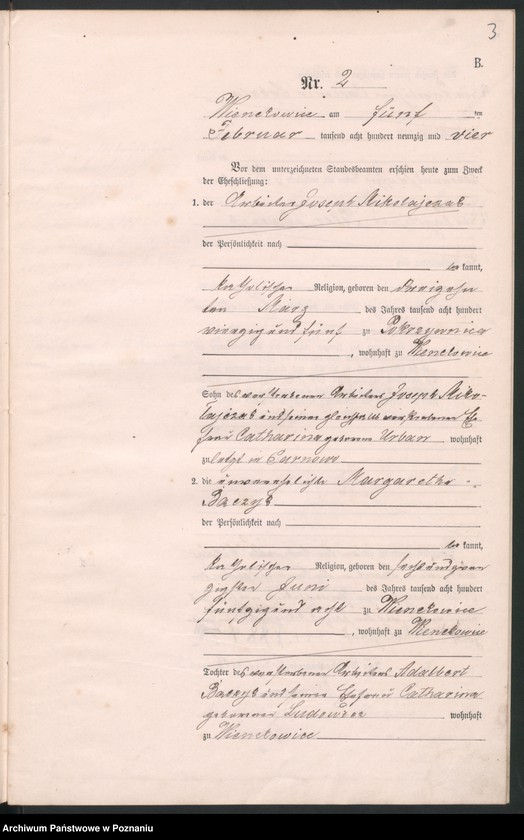 3
B.
Nr. 2
Wienckowice am fünf ten
Februar tausend acht hundert neunzig und vier
Vor dem unterzeichneten Standesbeamten erschien heute zum Zweck
der Eheschließung:
1. der Arbeiter Joseph Mikolajczak
der Persönlichkeit nach
be kannt,
katholischer Religion, geboren den dreizehn
ten März des Jahres tausend acht hundert
vierzig und fünf zu
, wohnhaft zu Wienckowice
Sohn des verstorbenen Arbeiters Joseph Miko-
lajczak und seiner gleichfalls verstorbenen Ehe
frau Catharina geborene Urban wohnhaft
zuletzt in Tarnowo
2. die unverehelichte Margarethe
Baczyk
der Persönlichkeit nach
be kannt,
katholischer Religion, geboren den sechsundzwan
zigsten Juni des Jahres tausend acht hundert
fünfzig und acht zu Wienckowice
, wohnhaft zu Wienckowice
Tochter des verstorbenen Arbeiters Adalbert
Baczyk und seiner Ehefrau Catharina
geborenen Ludowicz wohnhaft
zu Wienckowice
Archiwum Państwowe w Poznaniu